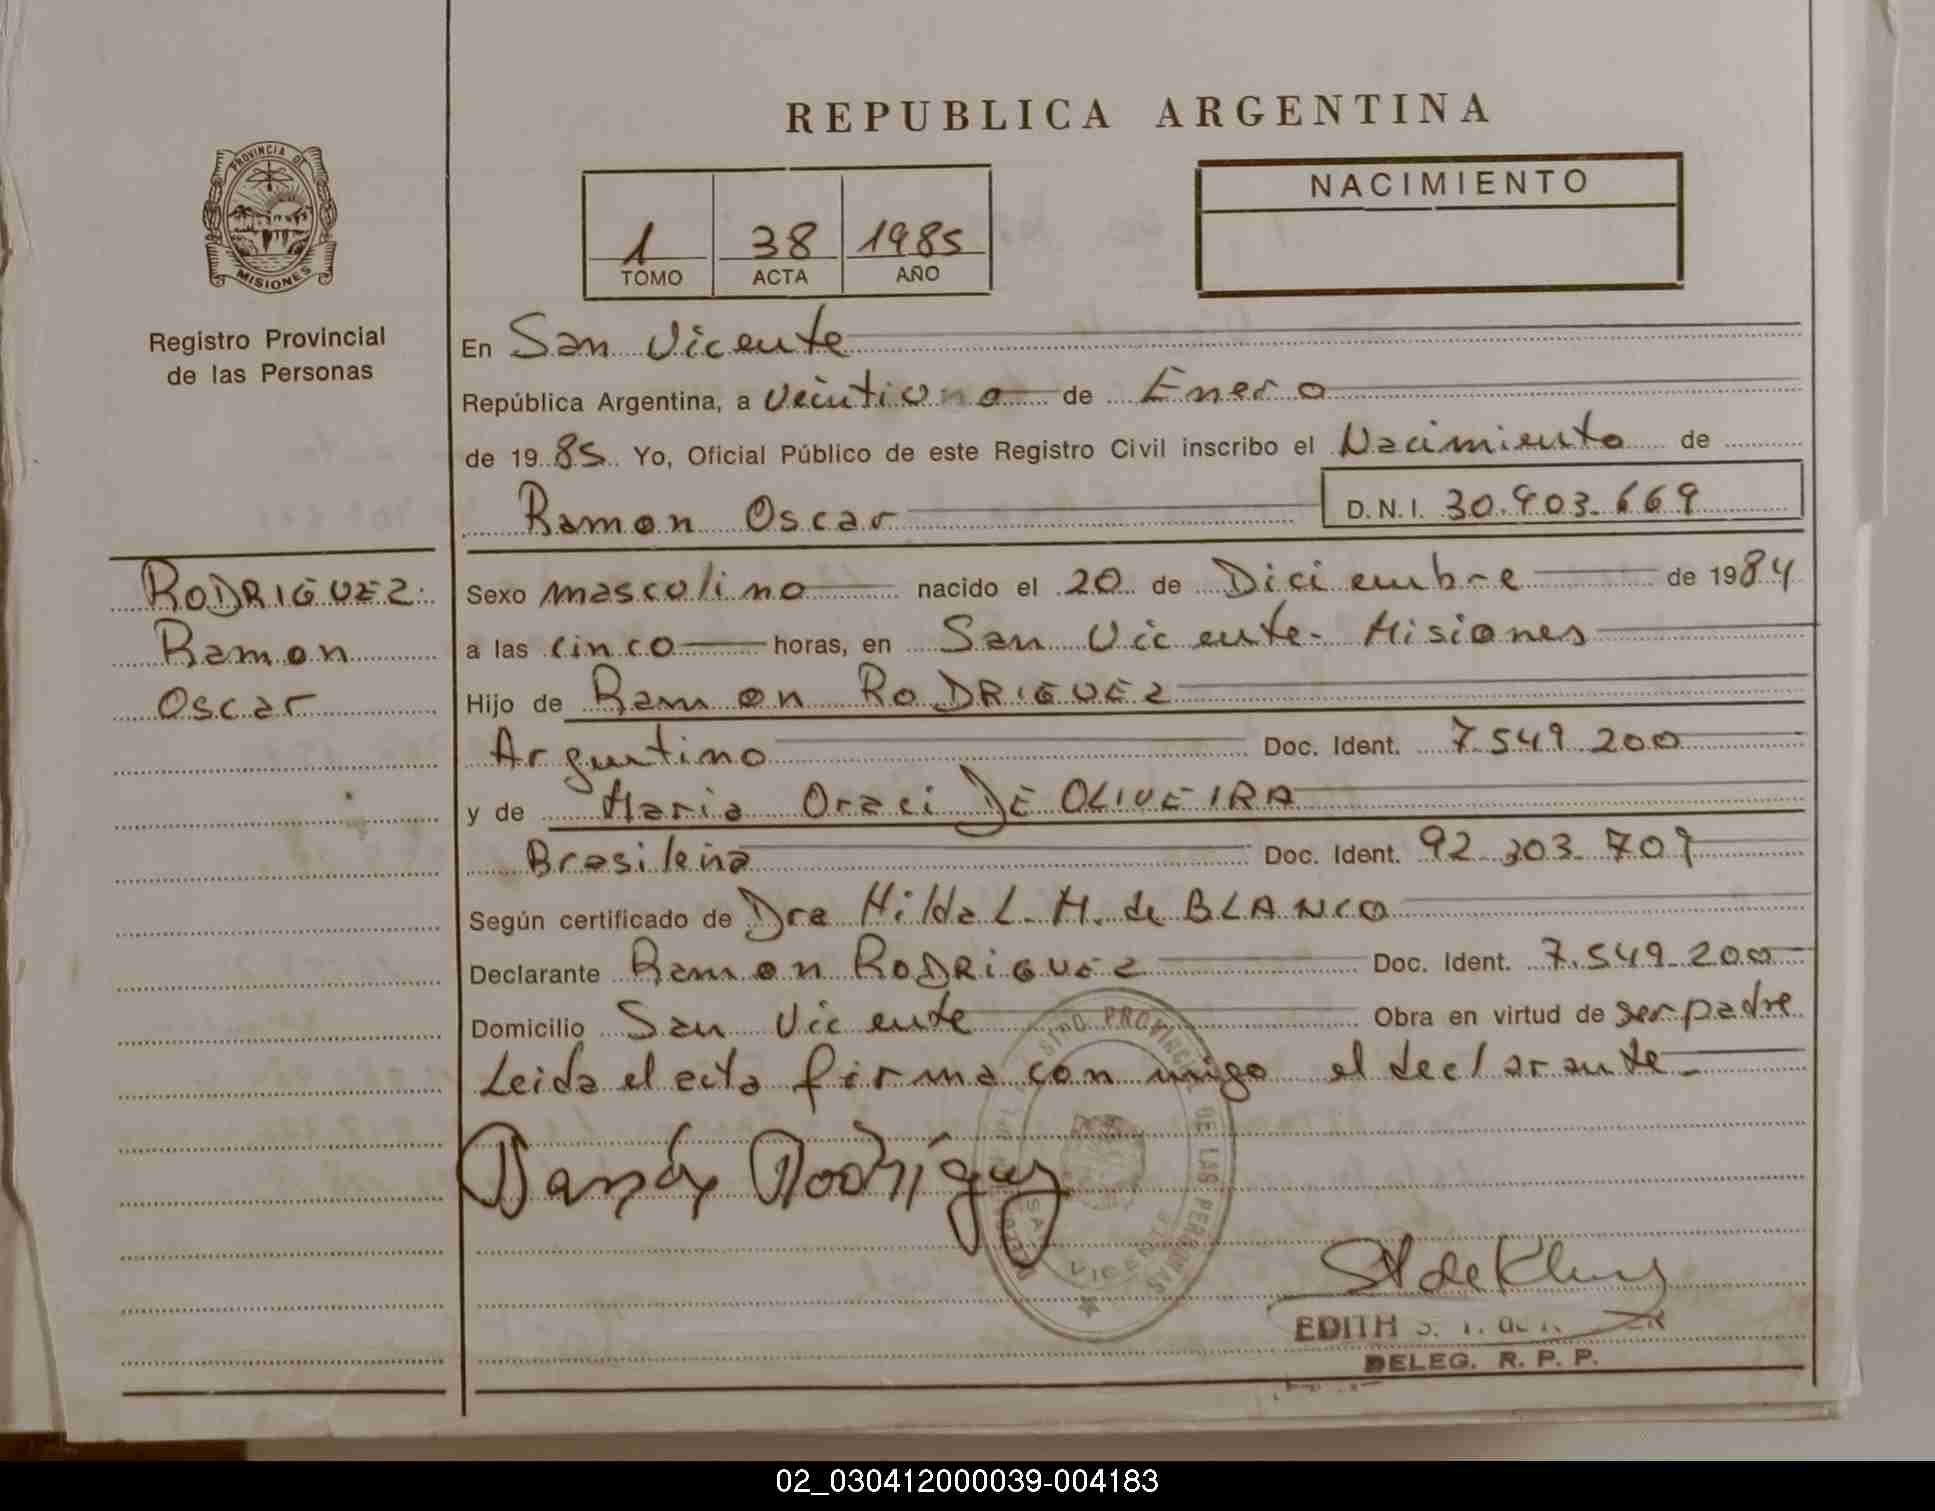 REPUBLICA ARGENTINA
PROVINCIA DE
MISIONES
Registro Provincial
de las Personas
1 38 1985
TOMO ACTA AÑO
NACIMIENTO
En San Vicente
República Argentina, a veintiuno de Enero
de 1985 Yo, Oficial Público de este Registro Civil inscribo el Nacimiento de
Ramon Oscar D.N.I. 30.903.669
RODRIGUEZ
Ramon
Oscar
Sexo mascolino nacido el 20 de Diciembre de 1984
a las cinco horas, en San Vicente - Misiones
Hijo de Ramon RODRIGUEZ
Argentino Doc. Ident. 7.549.200
y de Maria Oraci DE OLIVEIRA
Brasileña Doc. Ident. 92.303.709
Según certificado de Dra Hilda L. M. de BLANCO
Declarante Ramon RODRIGUEZ Doc. Ident. 7.549.200
Domicilio San Vicente Obra en virtud de ser padre
Leida el acta firma con migo el declarante
Ramón Rodríguez
PROVINCIAL DE LAS PERSONAS
VICENTE
EDITH
DELEG. R. P. P.
02_030412000039-004183